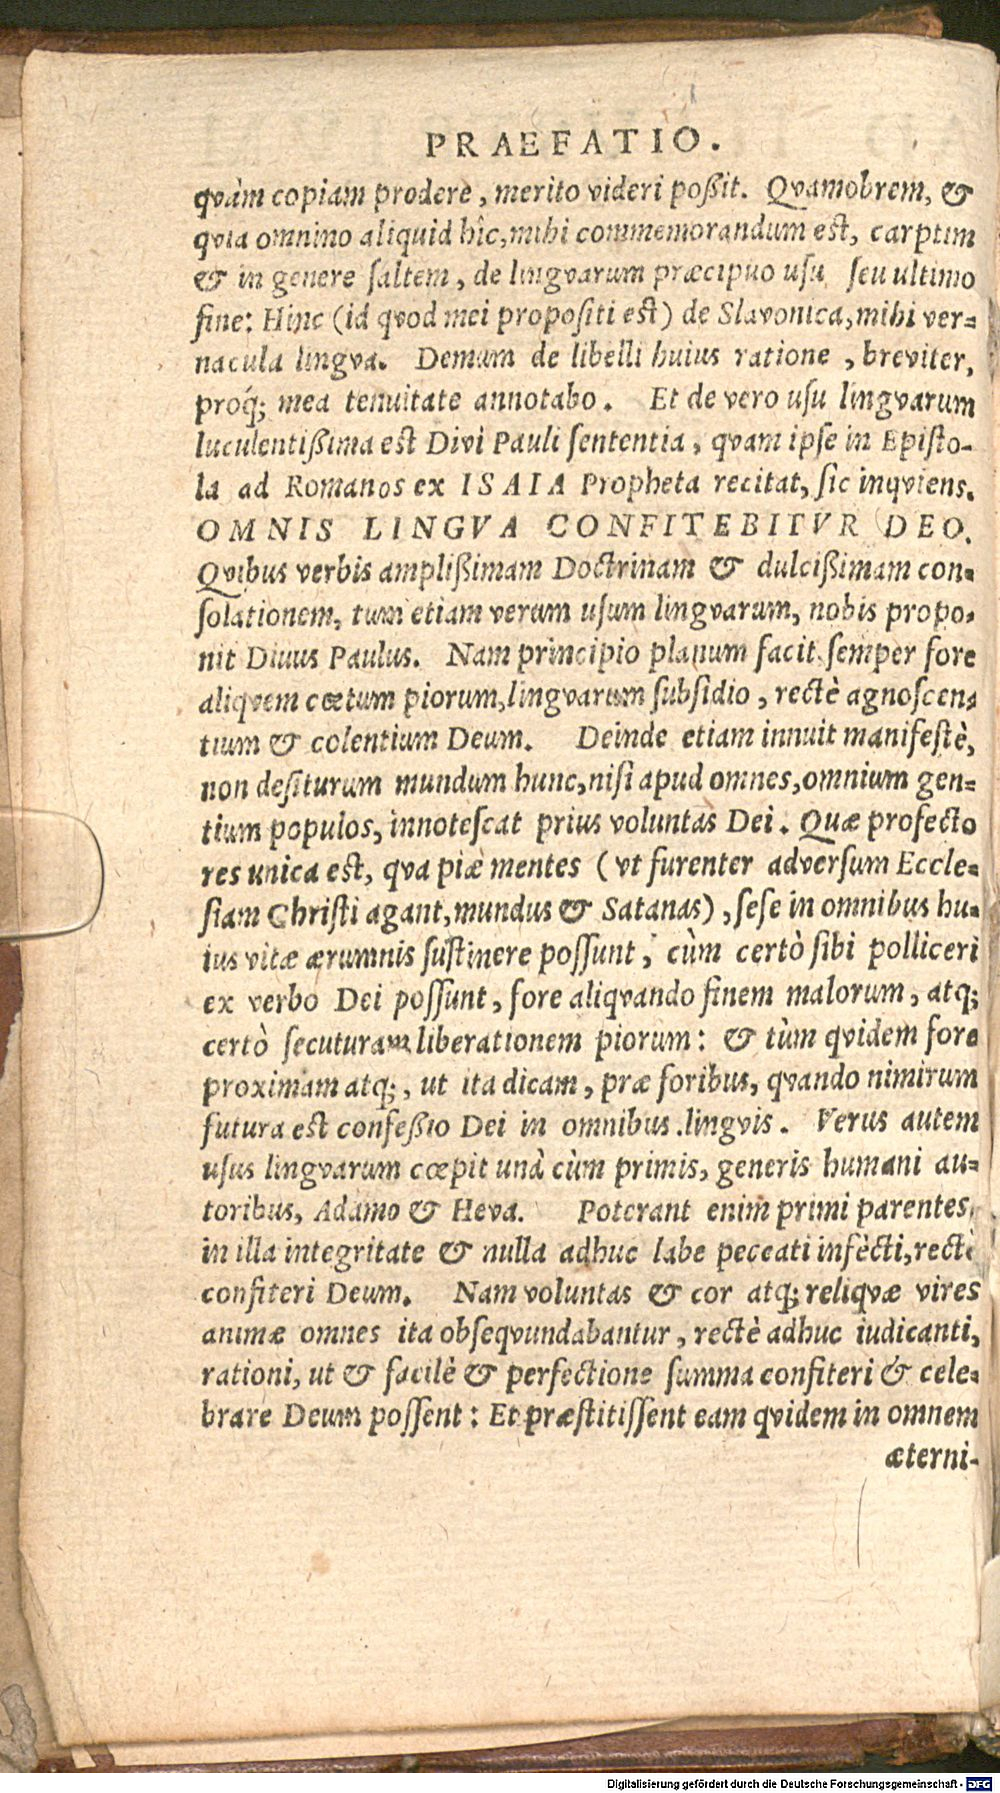 PRAEFATIO.
qvàm copiam prodere, merito videri poßit. Qvamobrem, &
qvia omnino aliquid hîc, mihi commemorandum est, carptim
& in genere saltem, de lingvarum præcipuo usu seu ultimo
fine: Hinc (id qvod mei propositi est) de Slavonica, mihi ver=
nacula lingva. Demum de libelli huius ratione, breviter,
proq́; mea tenuitate annotabo. Et de vero usu lingvarum
luculentißima est Divi Pauli sententia, qvam ipse in Episto-
la ad Romanos ex ISAIA Propheta recitat, sic inqviens.
OMNIS LINGVA CONFITEBITVR DEO.
Qvibus verbis amplißimam Doctrinam & dulcißimam con=
solationem, tum etiam verum usum lingvarum, nobis propo=
nit Divus Paulus. Nam principio planum facit semper fore
aliqvem cœtum piorum, lingvarum subsidio, rectè agnoscen=
tium & colentium Deum. Deinde etiam innuit manifestè,
non desiturum mundum hunc, nisi apud omnes, omnium gen=
tium populos, innotescat prius voluntas Dei. Quæ profecto
res unica est, qva piæ mentes (vt furenter adversum Eccle=
siam Christi agant, mundus & Satanas), sese in omnibus hu=
ius vitæ ærumnis sustinere possunt, cùm certò sibi polliceri
ex verbo Dei possunt, fore aliqvando finem malorum, atq;
certò secuturam liberationem piorum: & tùm qvidem fore
proximam atq;, ut ita dicam, præ foribus, qvando nimirum
futura est confeßio Dei in omnibus lingvis. Verus autem
usus lingvarum cœpit unà cùm primis, generis humani au=
toribus, Adamo & Heva. Poterant enim primi parentes,
in illa integritate & nulla adhuc labe peccati infècti, rectè
confiteri Deum. Nam voluntas & cor atq; reliqvæ vires
animæ omnes ita obseqvundabantur, rectè adhuc iudicanti,
rationi, ut & facilè & perfectione summa confiteri & cele=
brare Deum possent: Et præstitissent eam qvidem in omnem
æterni-
Digitalisierung gefördert durch die Deutsche Forschungsgemeinschaft - DFG